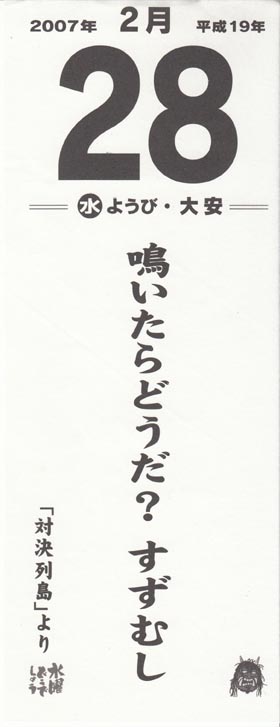 2007年 2月 平成19年
28
水ようび・大安
鳴いたらどうだ？すずむし
「対決列島」より
水曜
どうで
しょう